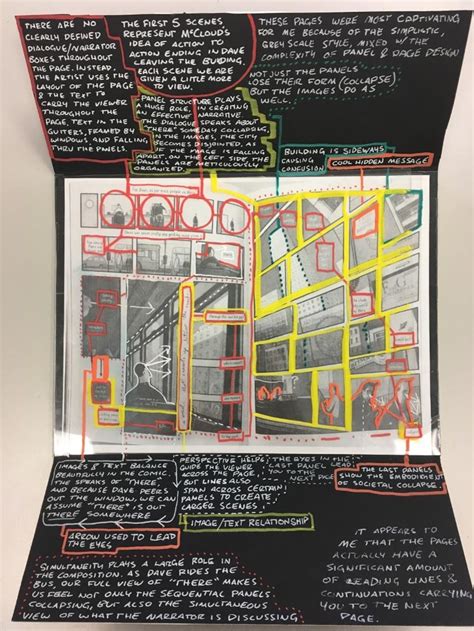 THERE ARE NO
CLEARLY DEFINED
DIALOGUE/NARRATOR
BOXES THROUGHOUT
THE PAGE. INSTEAD
THE ARTIST USES THE
LAYOUT OF THE PAGE
& THE TEXT TO
CARRY THE VIEWER
THROUGHOUT THE
PAGE, TEXT IN THE
GUTTERS, FRAMED BY
WINDOWS, AND FALLING
THRU THE PANELS.
THE FIRST 5 SCENES
REPRESENT McCLOUD'S
IDEA OF ACTION TO
ACTION ENDING IN DAVE
LEAVING THE BUILDING.
EACH SCENE WE ARE
GIVEN A LITTLE MORE
TO VIEW.
THESE PAGES WERE MOST CAPTIVATING
FOR ME BECAUSE OF THE SIMPLISTIC,
GREY SCALE STYLE, MIXED W/ THE
COMPLEXITY OF PANEL & PAGE DESIGN
NOT JUST THE PANELS
LOSE THEIR FORM (COLLAPSE)
BUT THE IMAGES DO AS
WELL.
PANEL STRUCTURE PLAYS
A HUGE ROLE, IN CREATING
AN EFFECTIVE NARRATIVE.
THE DIALOGUE SPEAKS ABOUT
"THERE" SOMEDAY COLLAPSING,
IN THE IMAGES, THE CITY
BECOMES DISJOINTED, AS
IF THE IMAGE IS FALLING
APART, ON THE LEFT SIDE, THE
PANELS ARE METICULOUSLY
ORGANIZED.
BUILDING IS SIDEWAYS
CAUSING
CONFUSION
COOL HIDDEN MESSAGE
IMAGES & TEXT BALANCE
BEAUTIFULLY IN THE COMIC.
THE SPEAKS OF "THERE",
AND BECAUSE DAVE PEERS
OUT THE WINDOW, WE CAN
ASSUME "THERE" IS OUT
THERE SOMEWHERE
PERSPECTIVE HELPS
GUIDE THE VIEWER
ACROSS THE PAGE,
BUT LINES ALSO
SPAN ACROSS CERTAIN
PANELS TO CREATE
LARGER SCENES.
THE EYES IN THE
LAST PANEL LEAD
YOU TO THE
NEXT PAGE
THE LAST PANELS
SHOW THE EMBODIMENT
OF SOCIETAL COLLAPSE.
IMAGE/TEXT RELATIONSHIP
ARROW USED TO LEAD
THE EYES
SIMULTANEITY PLAYS A LARGE ROLE IN
THE COMPOSITION. AS DAVE RIDES THE
BUS, OUR FULL VIEW OF "THERE" MAKES
US FEEL NOT ONLY THE SEQUENTIAL PANELS
COLLAPSING, BUT ALSO THE SIMULTANEOUS
VIEW OF WHAT THE NARRATOR IS DISCUSSING
IT APPEARS TO
ME THAT THE PAGES
ACTUALLY HAVE A
SIGNIFICANT AMOUNT
OF LEADING LINES &
CONTINUATIONS CARRYING
YOU TO THE NEXT
PAGE.